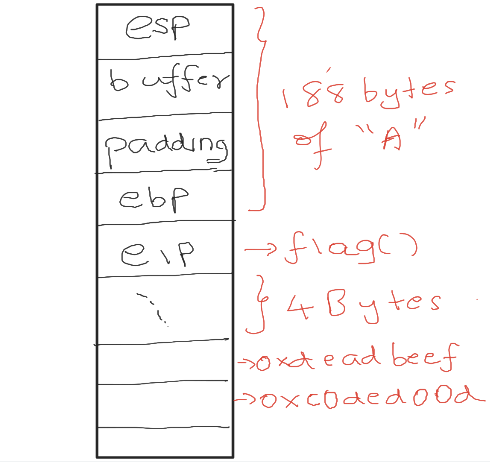 esp
buffer
padding
ebp
188 bytes
of "A"
eip
→ flag()
4 Bytes
→ 0xdeadbeef
→ 0xc0ded00d